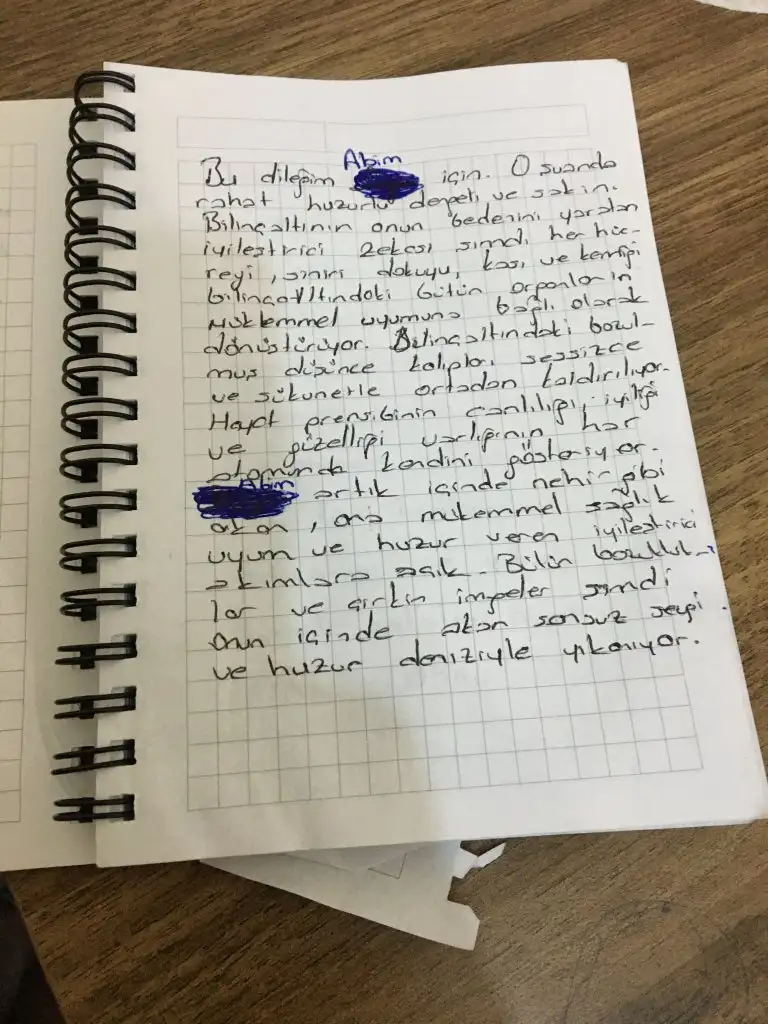 Bu dileğim Abim için. O şuanda
rahat huzurlu dengeli ve sakin.
Bilinçaltının onun bedenini yaratan
iyileştirici zekası şimdi her hüc-
reyi, siniri dokuyu, kası ve kemiği
bilinçaltındaki bütün organların
mükemmel uyumuna bağlı olarak
dönüştürüyor. Bilinçaltındaki bozul-
muş düşünce kalıpları sessizce
ve sükunetle ortadan kaldırılıyor.
Hayat prensibinin canlılığı, iyiliği
ve güzelliği varlığının her
atomunda kendini gösteriyor.
Abim artık içinde nehir gibi
akan, ona mükemmel sağlık
uyum ve huzur veren iyileştirici
akımlara açık. Bütün bozukluk-
lar ve çirkin imgeler şimdi
onun içinde akan sonsuz sevgi
ve huzur deniziyle yıkanıyor.